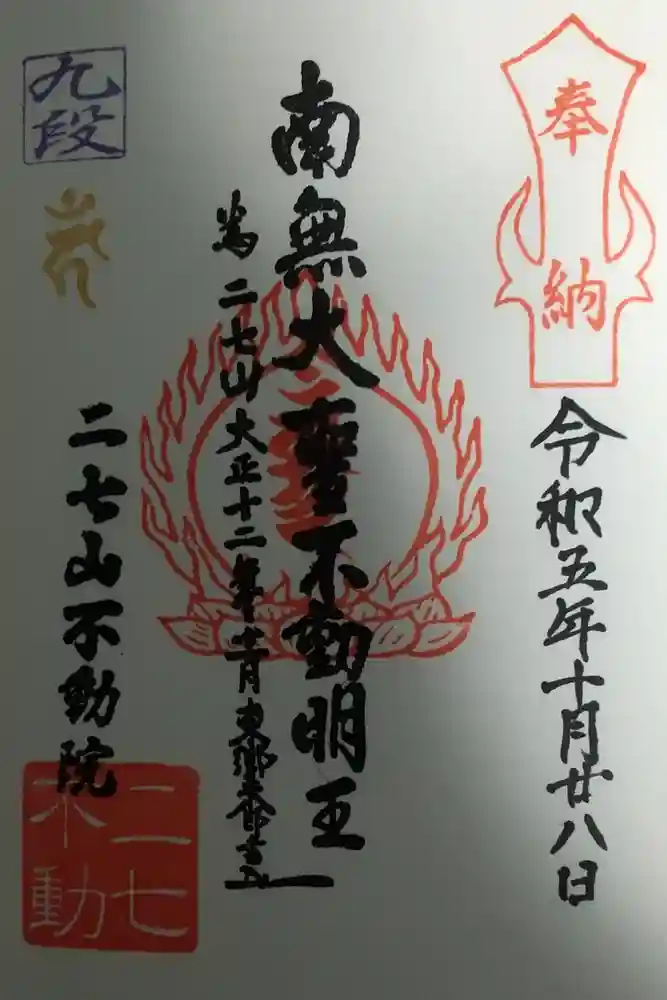 奉納
令和五年十月廿八日
南無大聖不動明王
二七山大正十二年
月東郷
九段
二七山不動院
二七
不動